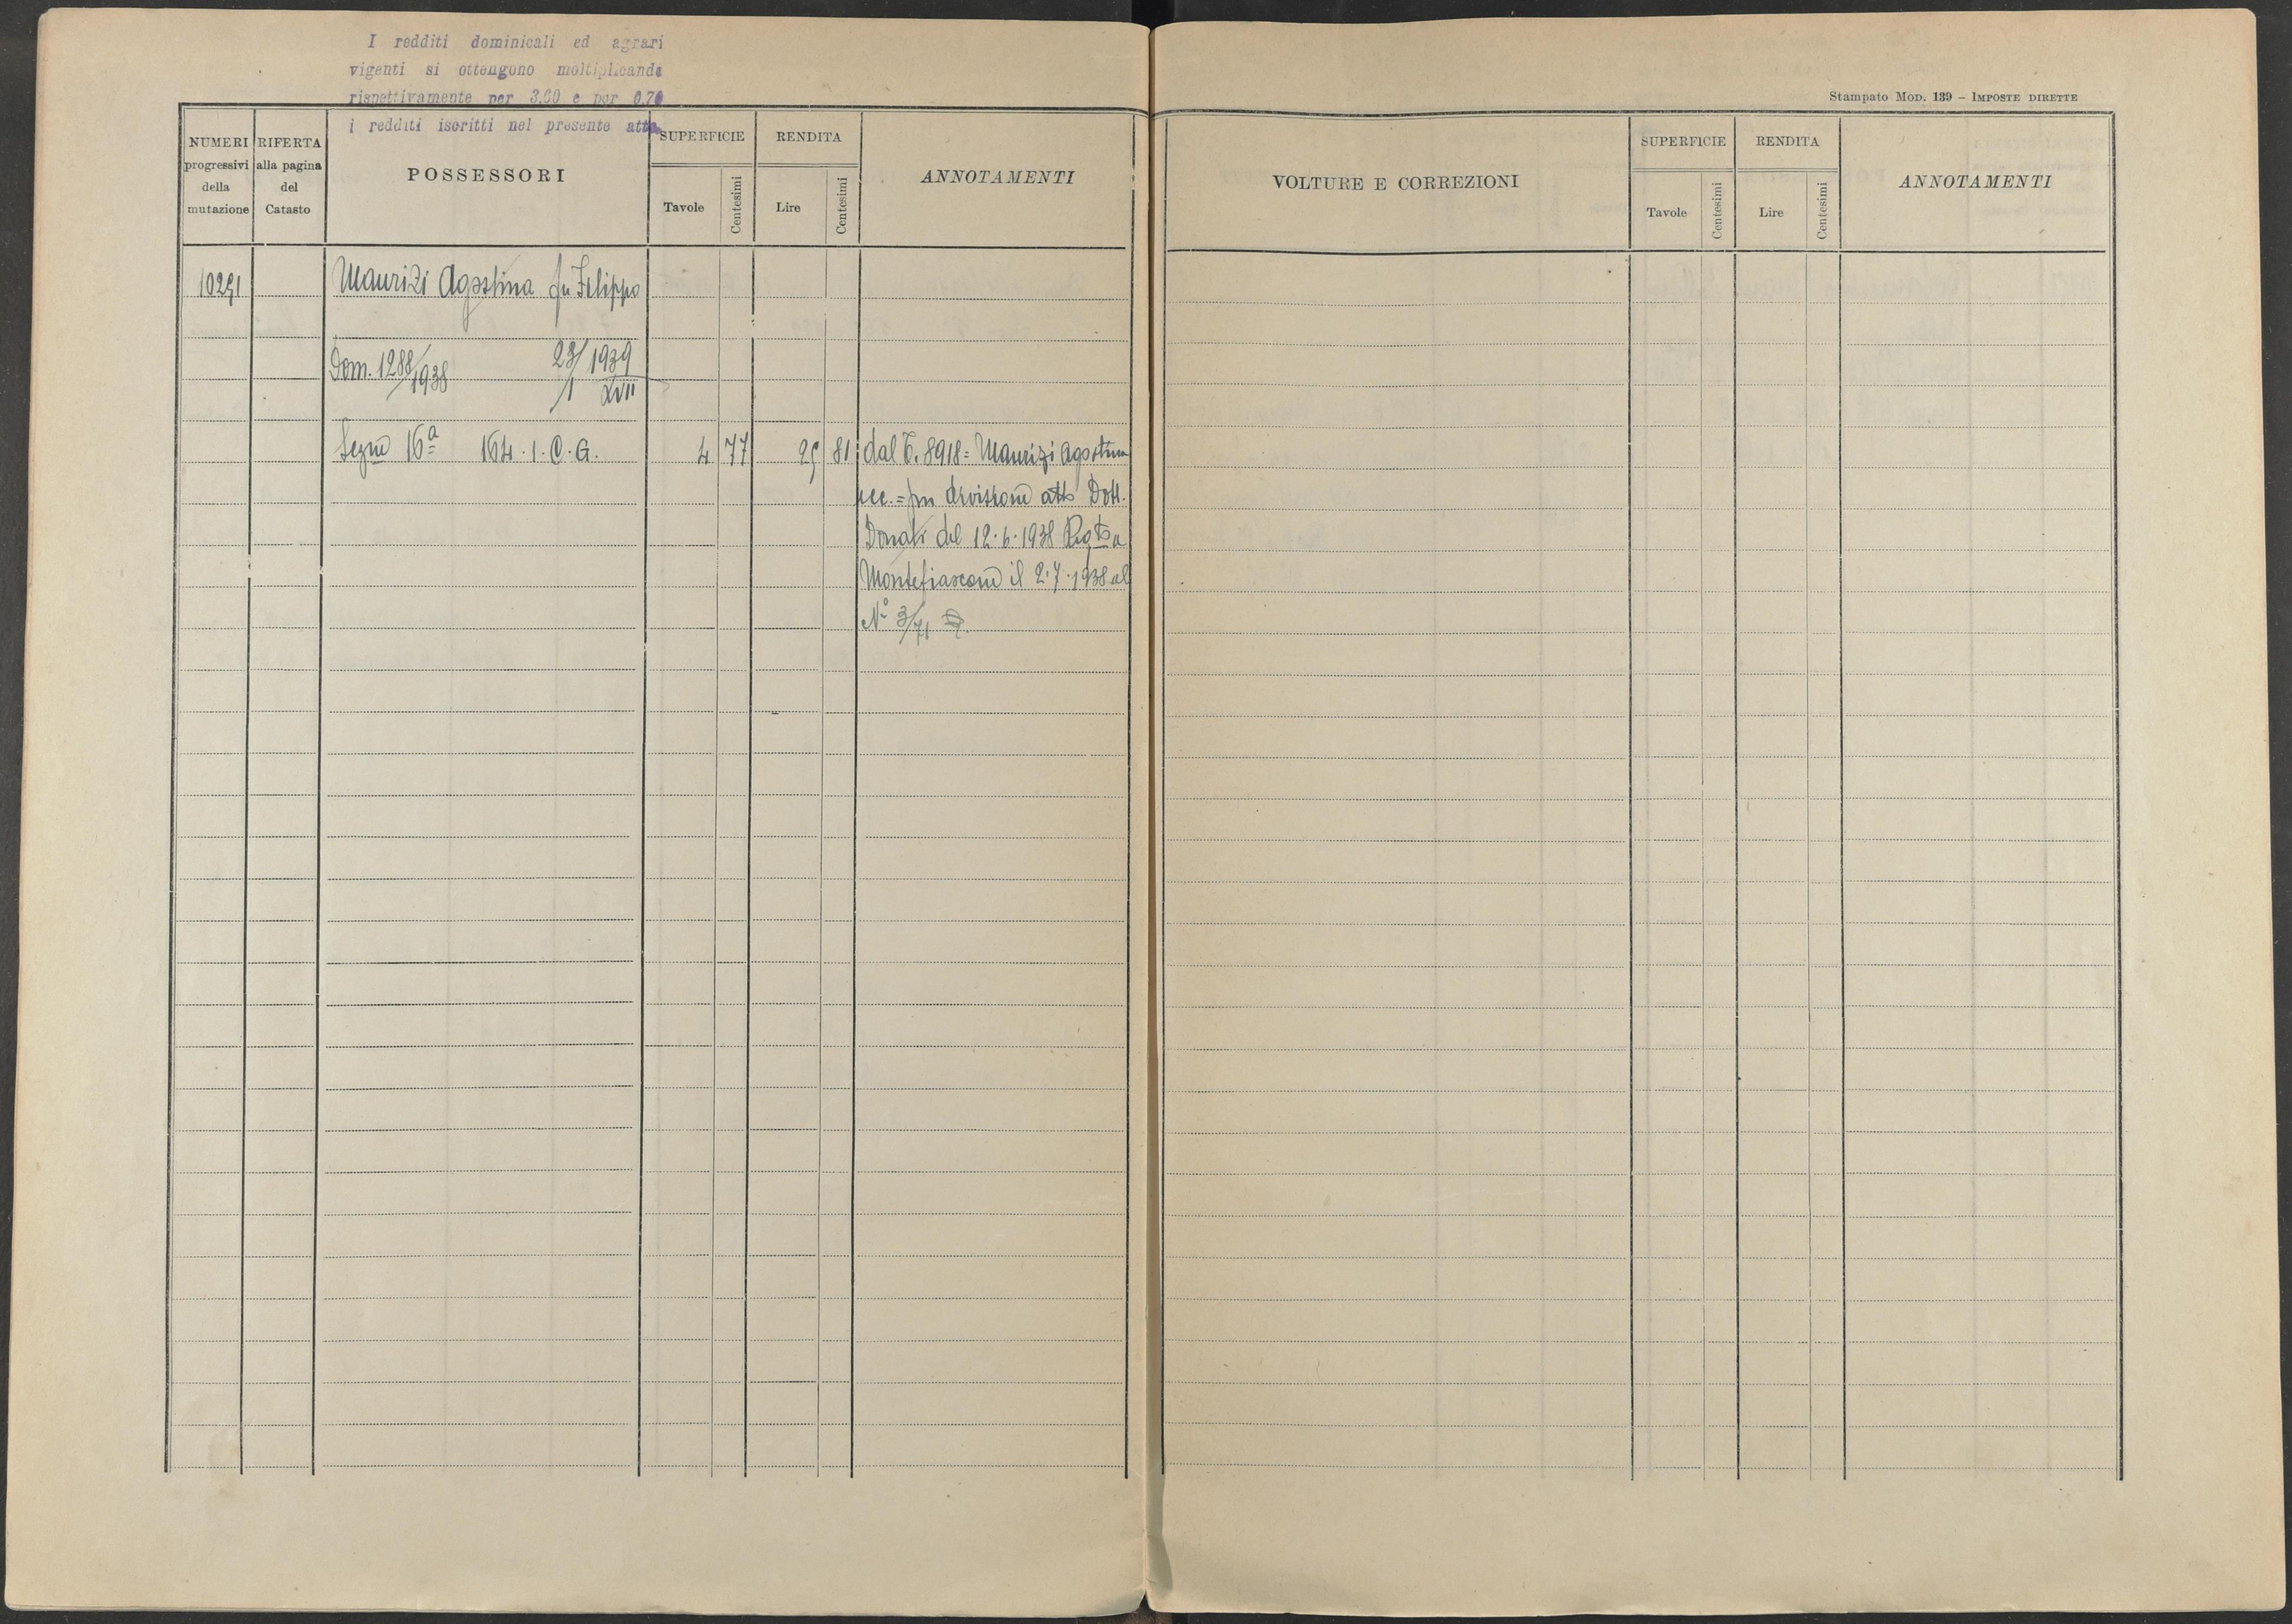 I redditi dominicali ed agrari
vigenti si ottengono moltiplicando
rispettivamente per 3.60 e per 0.70
i redditi iscritti nel presente atto
Stampato MOD. 139 – IMPOSTE DIRETTE
NUMERI progressivi della mutazione
RIFERTA alla pagina del Catasto
POSSESSORI
SUPERFICIE
Tavole
Centesimi
RENDITA
Lire
Centesimi
ANNOTAMENTI
VOLTURE E CORREZIONI
SUPERFICIE
Tavole
Centesimi
RENDITA
Lire
Centesimi
ANNOTAMENTI
Maurizi Agostina fu Filippo
Dom. 1288/1938 23/1 1939 XVII
Segue 16ª 164.1.C.G. 4 77 81 dal T. 8918 = Maurizi Agostina
ecc. = per divisione atto Dott.
Donati del 12.6.1938 Regto a
Montefiascone il 2.7.1938 al
Nº 3/71